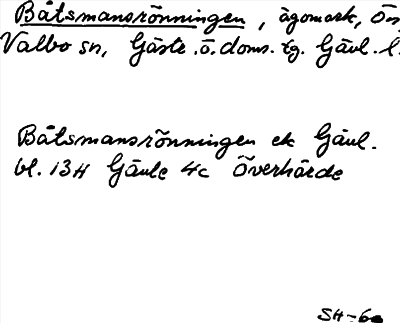 Båtsmansrönningen, ägomark, Ön,
Valbo sn, Gästr. ö. doms. tg. Gävl. l.
Båtsmansrönningen ek Gävl.
bl. 13H Gävle 4c Överhärde
SH-60